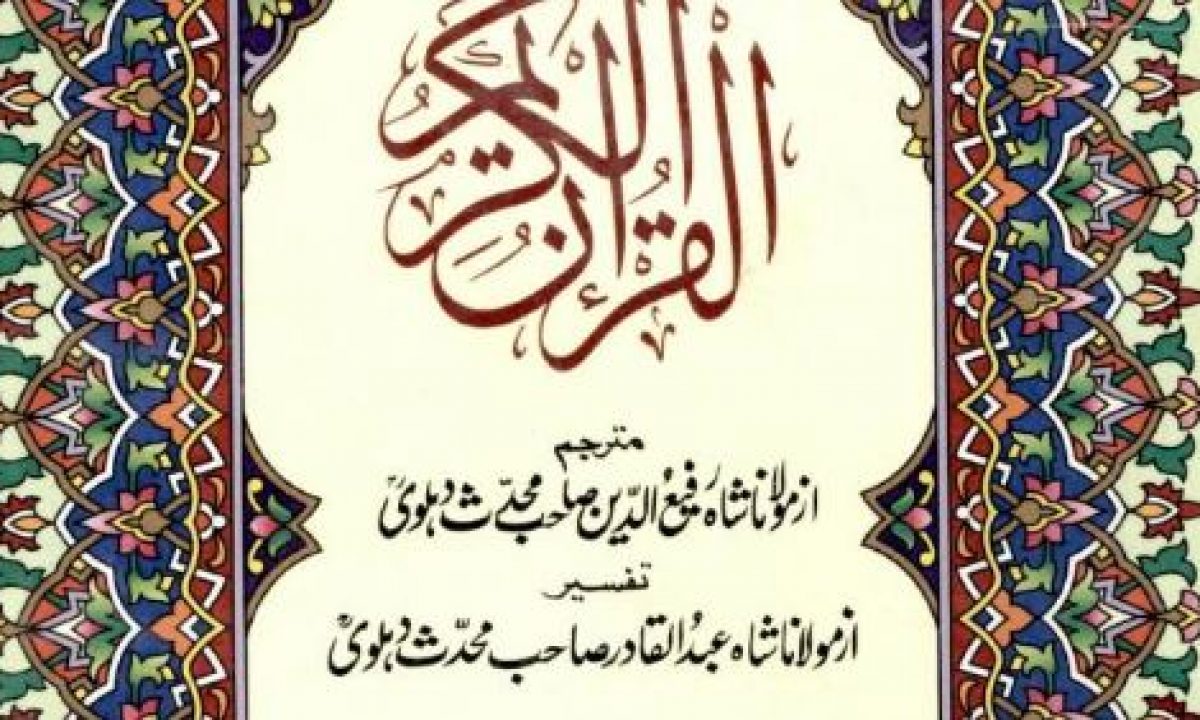 القرآن الكريم
مترجم
از مولانا شاہ رفیعُ الدّین صاحب محدّث دہلویؒ
تفسیر
از مولانا شاہ عبدُ القادر صاحب محدّث دہلویؒ